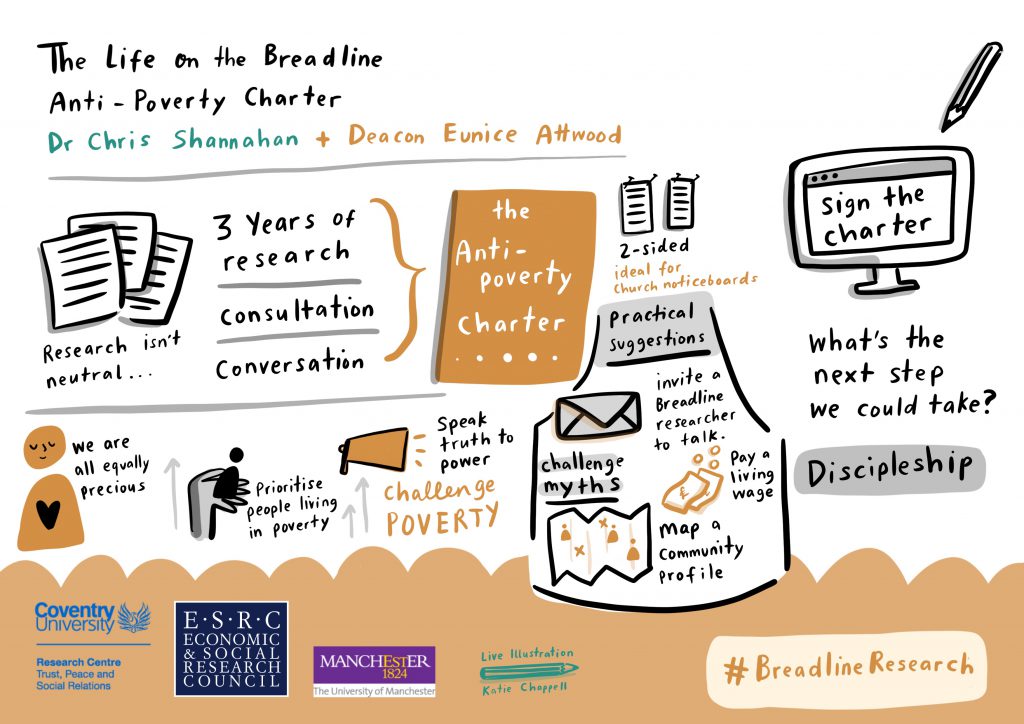 The Life on the Breadline
Anti-Poverty Charter
Dr Chris Shannahan + Deacon Eunice Attwood
Research isn't
neutral...
3 Years of
research
consultation
conversation
the
Anti-
poverty
charter
.....
2-sided
ideal for
church noticeboards
practical
suggestions
invite a
Breadline
researcher
to talk.
challenge
myths
Pay a
living
wage
£
map a
community
profile
sign the
charter
What's the
next step
we could take?
Discipleship
we are
all equally
precious
Prioritise
people living
in poverty
Speak
truth to
power
challenge
POVERTY
Coventry
University
Research Centre
Trust, Peace and
Social Relations
E·S·R·C
ECONOMIC
& SOCIAL
RESEARCH
COUNCIL
MANCHESTER
1824
The University of Manchester
Live Illustration
Katie Chappell
#BreadlineResearch